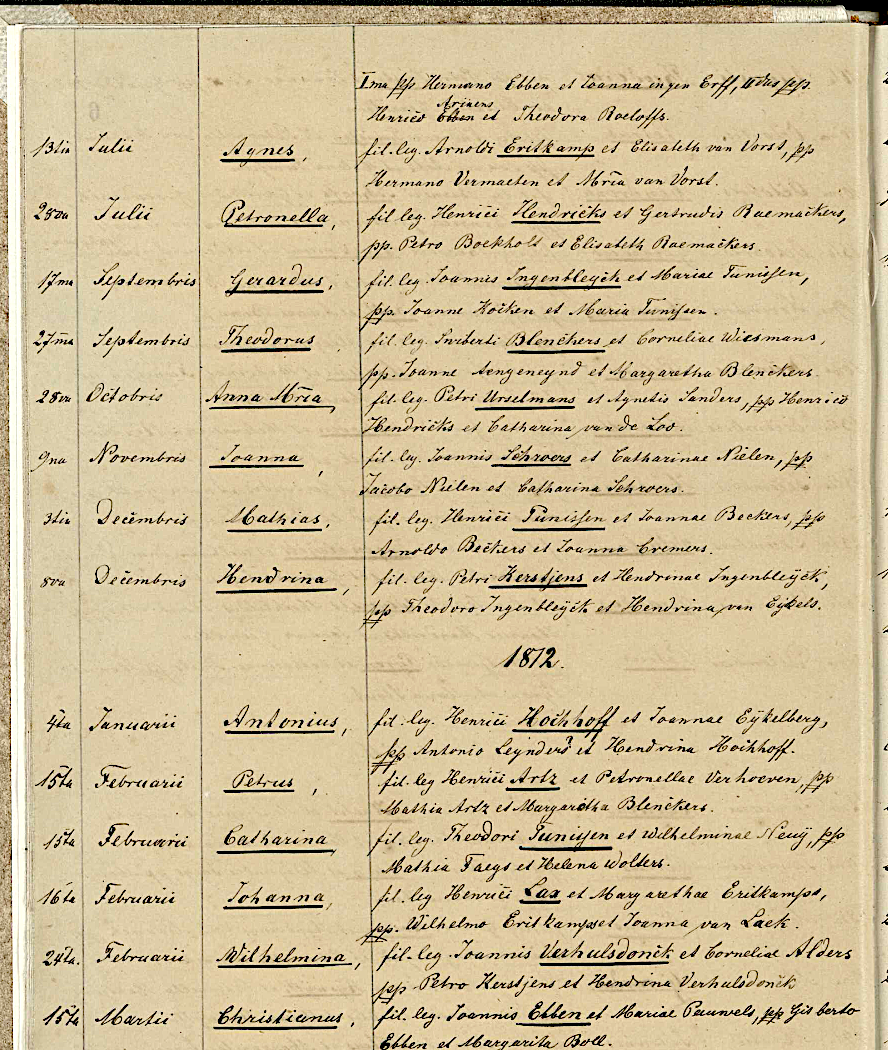 Ima pp Hermano Ebben et Ioanna ingen Erff, IIdus pp.
Arinens
Henrico Ebben et Theodora Roeloffs.
13tia Iulii Agnes, fil. leg. Arnoldi Eritkamp et Elisabeth van Vorst, pp
Hermano Vermaeten et Mria van Vorst.
28va Iulii Petronella, fil. leg. Henrici Hendricks et Gertrudis Raemackers,
pp. Petro Boekholt et Elisabeth Raemackers.
17ma Septembris Gerardus, fil. leg. Ioannis Ingenbleyck et Mariae Tunissen,
pp. Ioanne Kocken et Maria Tunissen.
27ma Septembris Theodorus, fil. leg. Swiberti Blenckers et Corneliae Wiesmans,
pp. Ioanne Aengeneynd et Margaretha Blenckers.
28va Octobris Anna Mria, fil. leg. Petri Urselmans et Agnetis Sanders, pp Henrico
Hendricks et Catharina van de Loo.
9na Novembris Ioanna, fil. leg. Ioannis Schroers et Catharinae Nielen, pp
Iacobo Nielen et Catharina Schroers.
3tia Decembris Mathias, fil. leg. Henrici Tunissen et Ioannae Beckers, pp
Arnoldo Beckers et Ioanna Cremers.
8va Decembris Hendrina, fil. leg. Petri Kerstjens et Hendrinae Ingenbleyck,
pp Theodoro Ingenbleyck et Hendrina van Eykels.
1872.
4ta Ianuarii Antonius, fil. leg. Henrici Hoichhoff et Ioannae Eykelberg,
pp Antonio Leynders? et Hendrina Hoichhoff.
15ta Februarii Petrus, fil. leg Henrici Artz et Petronellae Verhoeven, pp
Mathia Artz et Margaretha Blenckers.
15ta Februarii Catharina, fil. leg. Theodori Tunissen et Wilhelminae Neuy, pp
Mathia Faegs et Helena Wolters.
16ta Februarii Johanna, fil. leg Henrici Lax et Margarethae Eritkamps,
pp. Wilhelmo Eritkamps et Ioanna van Lack.
24ta. Februarii Wilhelmina, fil. leg. Ioannis Verhulsdonck et Corneliae Alders
pp Petro Kerstjens et Hendrina Verhulsdonck
15ta Martii Christianus, fil. leg. Ioannis Ebben et Mariae Pauwels, pp Gisberto
Ebben et Margarita Boll.